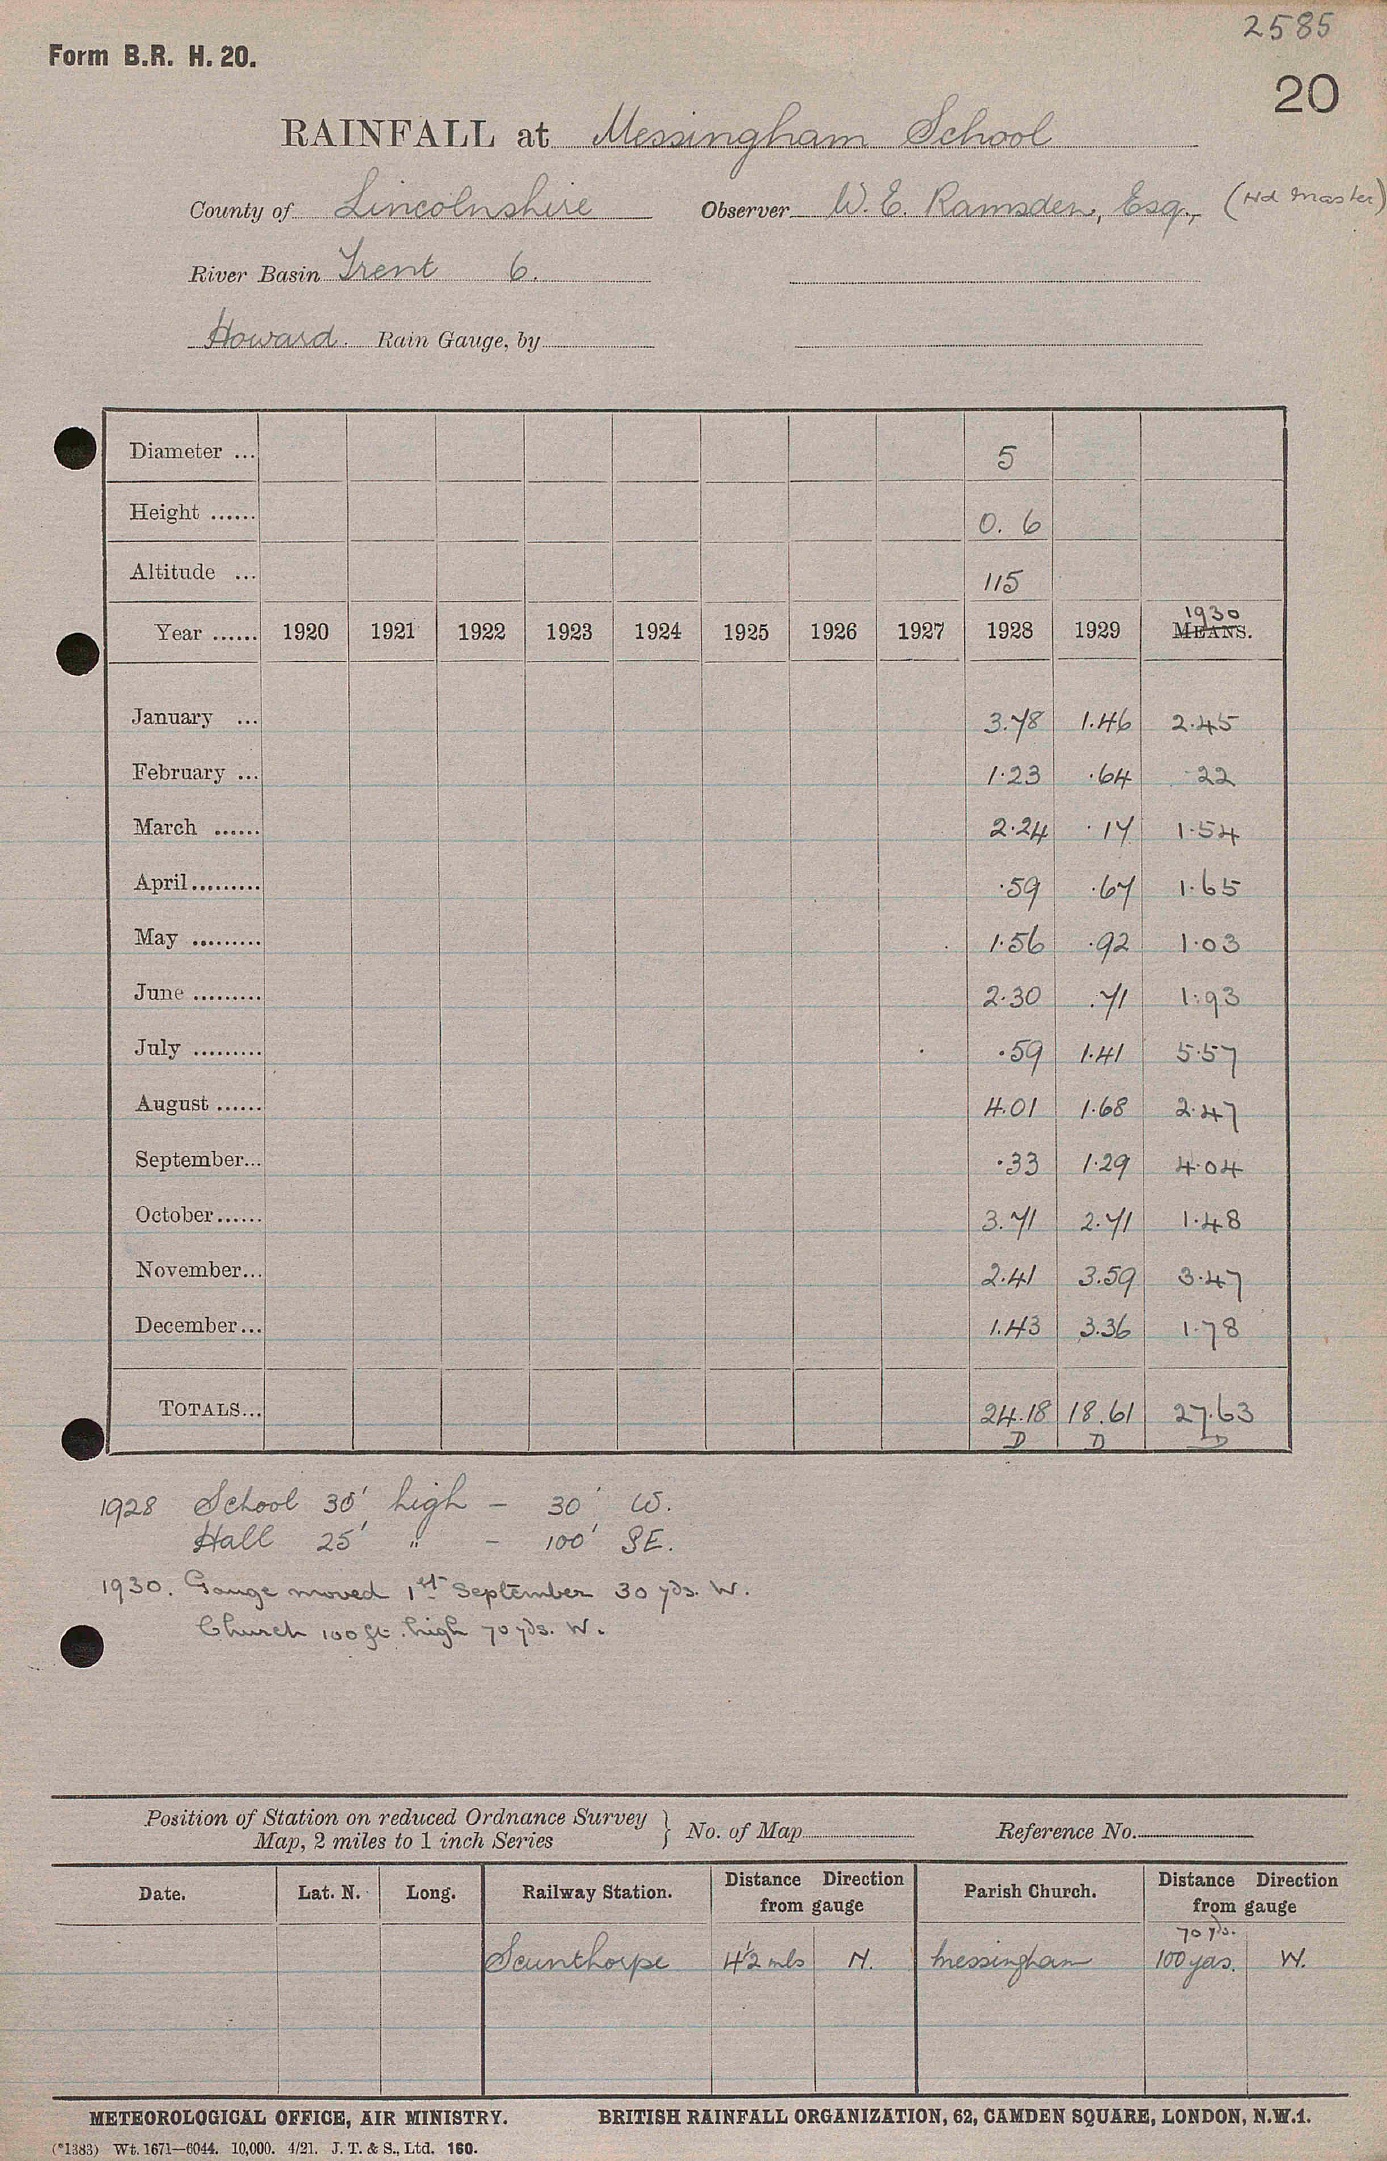 2585
Form B.R. H. 20.
20
RAINFALL at Messingham School
County of Lincolnshire Observer W. E. Ramsden, Esq., (Hd Master)
River Basin Trent 6.
Howard. Rain Gauge, by
Diameter ... 5
Height ...... 0. 6
Altitude ... 115
Year ...... 1920 1921 1922 1923 1924 1925 1926 1927 1928 1929 1930 MEANS.
January ... 3.78 1.46 2.45
February ... 1.23 .64 .22
March ...... 2.24 .17 1.54
April......... .59 .67 1.65
May ......... 1.56 .92 1.03
June ......... 2.30 .71 1.93
July ......... .59 1.41 5.57
August ...... 4.01 1.68 2.47
September... .33 1.29 4.04
October...... 3.71 2.71 1.48
November... 2.41 3.59 3.47
December... 1.43 3.36 1.78
TOTALS... 24.18 18.61 27.63
D D D
1928 School 30' high - 30' W.
Hall 25' " - 100' SE.
1930. Gauge moved 1st September 30 yds. W.
Church 100 ft. high 70 yds. W.
Position of Station on reduced Ordnance Survey
Map, 2 miles to 1 inch Series } No. of Map Reference No.
Date. Lat. N. Long. Railway Station. Distance Direction from gauge Parish Church. Distance Direction from gauge
70 yds.
Scunthorpe 4½ mls N. Messingham 100 yds. W.
METEOROLOGICAL OFFICE, AIR MINISTRY. BRITISH RAINFALL ORGANIZATION, 62, CAMDEN SQUARE, LONDON, N.W.1.
(*1383) Wt. 1671—6044. 10,000. 4/21. J. T. & S., Ltd. 160.